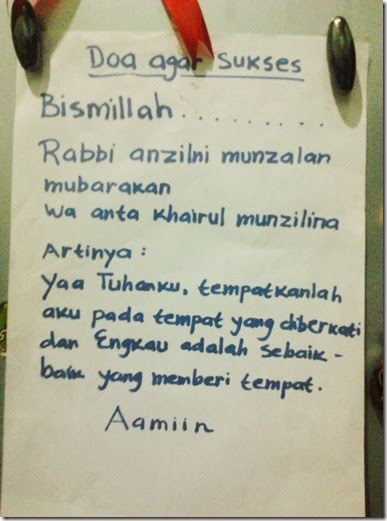 Doa agar sukses
Bismillah.........
Rabbi anzilni munzalan
mubarakan
wa anta khairul munzilina
Artinya :
Yaa Tuhanku, tempatkanlah
aku pada tempat yang diberkati
dan Engkau adalah sebaik-
baik yang memberi tempat.
Aamiin